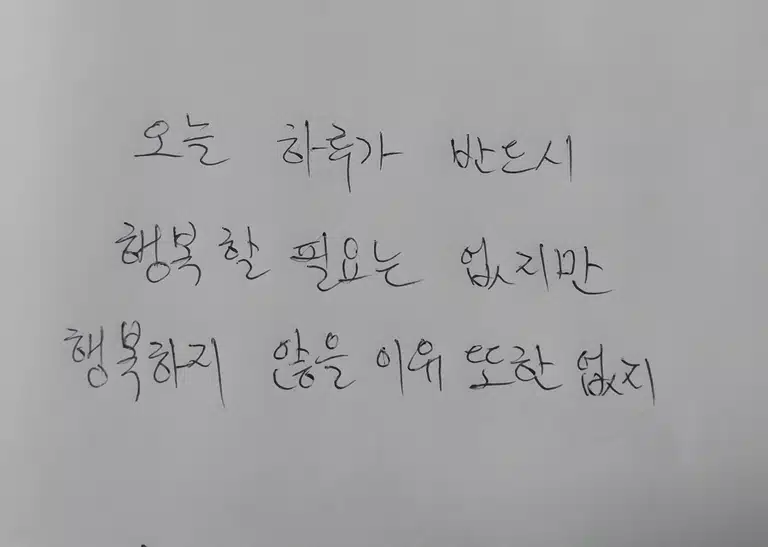 오늘 하루가 반드시
행복할 필요는 없지만
행복하지 않을 이유 또한 없지